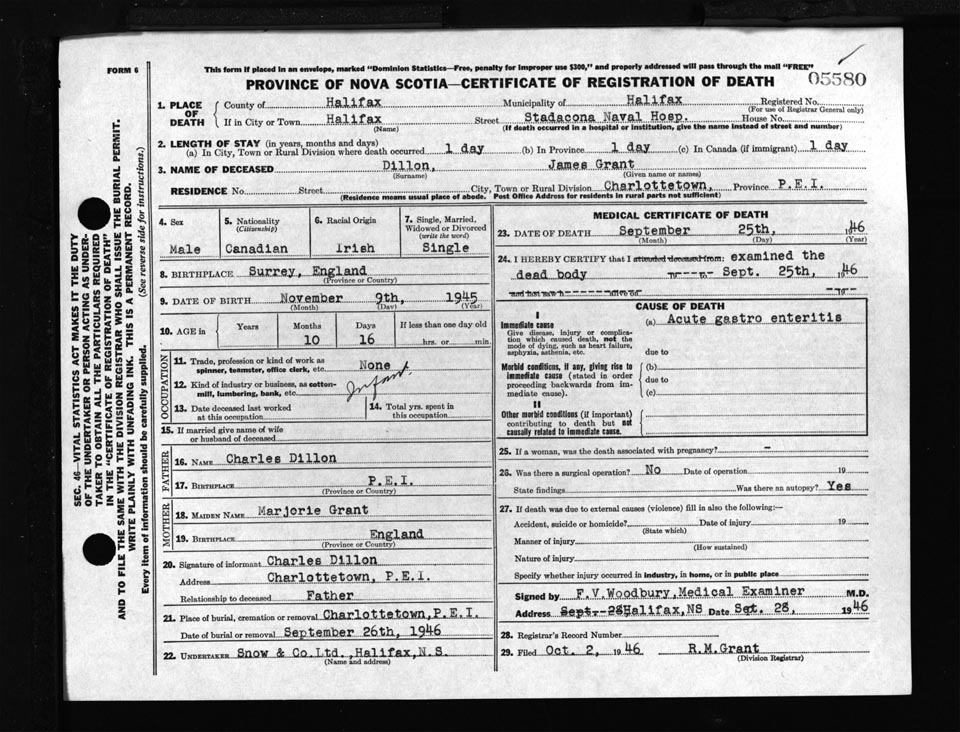 FORM 6
This form if placed in an envelope, marked "Dominion Statistics—Free, penalty for improper use $300," and properly addressed will pass through the mail "FREE"
PROVINCE OF NOVA SCOTIA—CERTIFICATE OF REGISTRATION OF DEATH
05580
SEC. 46—VITAL STATISTICS ACT MAKES IT THE DUTY
OF THE UNDERTAKER OR PERSON ACTING AS UNDER-
TAKER TO OBTAIN ALL THE PARTICULARS REQUIRED
IN THE "CERTIFICATE OF REGISTRATION OF DEATH"
AND TO FILE THE SAME WITH THE DIVISION REGISTRAR WHO SHALL ISSUE THE BURIAL PERMIT.
WRITE PLAINLY WITH UNFADING INK. THIS IS A PERMANENT RECORD.
Every item of information should be carefully supplied. (See reverse side for instructions.)
1. PLACE OF DEATH
County of Halifax Municipality of Halifax Registered No.
(For use of Registrar General only)
If in City or Town Halifax Street Stadacona Naval Hosp. House No.
(Name) (If death occurred in a hospital or institution, give the name instead of street and number)
2. LENGTH OF STAY (in years, months and days)
(a) In City, Town or Rural Division where death occurred 1 day (b) In Province 1 day (c) In Canada (if immigrant) 1 day
3. NAME OF DECEASED Dillon, James Grant
(Surname) (Given name or names)
RESIDENCE No. Street City, Town or Rural Division Charlottetown, Province P.E.I.
(Residence means usual place of abode. Post Office Address for residents in rural parts not sufficient)
4. Sex
Male
5. Nationality
(Citizenship)
Canadian
6. Racial Origin
Irish
7. Single, Married,
Widowed or Divorced
(write the word)
Single
8. BIRTHPLACE Surrey, England
(Province or Country)
9. DATE OF BIRTH November 9th, 1945
(Month) (Day) (Year)
10. AGE in
Years Months Days If less than one day old
10 16 hrs. or min.
OCCUPATION
11. Trade, profession or kind of work as
spinner, teamster, office clerk, etc. None
12. Kind of industry or business, as cotton-
mill, lumbering, bank, etc. Infant.
13. Date deceased last worked
at this occupation
14. Total yrs. spent in
this occupation
15. If married give name of wife
or husband of deceased
FATHER
16. NAME Charles Dillon
17. BIRTHPLACE P.E.I.
(Province or Country)
MOTHER
18. MAIDEN NAME Marjorie Grant
19. BIRTHPLACE England
(Province or Country)
20. Signature of informant Charles Dillon
Address Charlottetown, P.E.I.
Relationship to deceased Father
21. Place of burial, cremation or removal Charlottetown,P.E.I.
Date of burial or removal September 26th, 1946
22. UNDERTAKER Snow & Co.Ltd.,Halifax,N.S.
(Name and address)
MEDICAL CERTIFICATE OF DEATH
23. DATE OF DEATH September 25th, 1946
(Month) (Day) (Year)
24. I HEREBY CERTIFY that I attended deceased from: examined the
dead body Sept. 25th, 1946
and last saw h alive on 19
CAUSE OF DEATH
I
Immediate cause
Give disease, injury or complica-
tion which caused death, not the
mode of dying, such as heart failure,
asphyxia, asthenia, etc.
(a) Acute gastro enteritis
due to
Morbid conditions, if any, giving rise to
immediate cause (stated in order
proceeding backwards from im-
mediate cause).
(b)
due to
(c)
II
Other morbid conditions (if important)
contributing to death but not
causally related to immediate cause.
25. If a woman, was the death associated with pregnancy? -
26. Was there a surgical operation? No Date of operation 19
State findings Was there an autopsy? Yes
27. If death was due to external causes (violence) fill in also the following:—
Accident, suicide or homicide? Date of injury 19
(State which)
Manner of injury
(How sustained)
Nature of injury
Specify whether injury occurred in industry, in home, or in public place
Signed by F.V.Woodbury,Medical Examiner M.D.
Address Sept. 28 Halifax,NS Date Sept. 28, 1946
28. Registrar's Record Number
29. Filed Oct. 2, 1946 R.M.Grant
(Division Registrar)